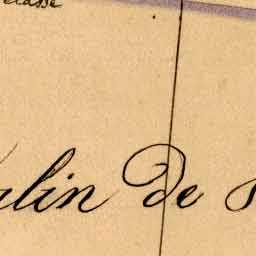 classe
alin de